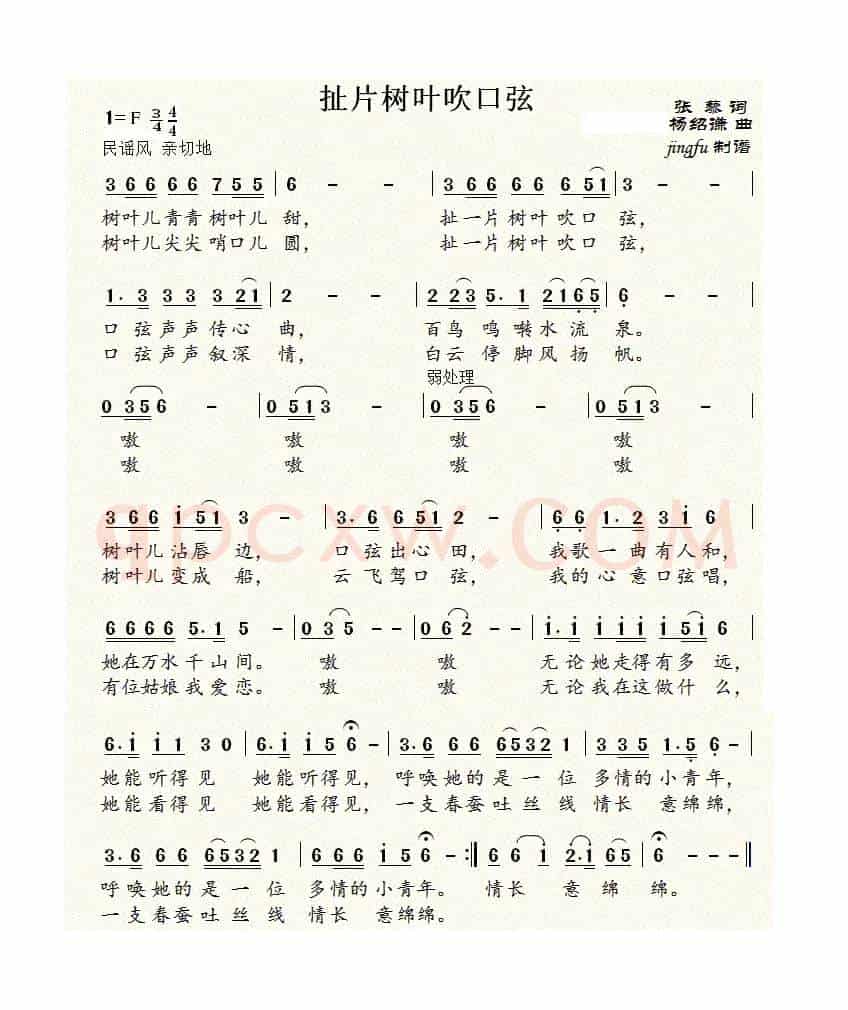 扯片树叶吹口弦
1=F 3/4 4/4
张藜词
杨绍谦曲
民谣风 亲切地
jingfu 制谱
3 6 6 6 6 6 7 5 5 | 6 - - | 3 6 6 6 6 6 6 5 1 | 3 - - |
树叶儿青青树叶儿 甜, 扯一片树叶吹口 弦,
树叶儿尖尖哨口儿 圆, 扯一片树叶吹口 弦,
1. 3 3 3 3 2 1 | 2 - - | 2 2 3 5. 1 2 1 6 5 | 6 - - |
口弦声声传心 曲, 百鸟 鸣啭水流 泉。
口弦声声叙深 情, 白云 停脚风扬 帆。
弱处理
0 3 5 6 - | 0 5 1 3 - | 0 3 5 6 - | 0 5 1 3 - |
嗷 嗷 嗷 嗷
嗷 嗷 嗷 嗷
qpcxw.COM
3 6 6 i 5 1 3 - | 3. 6 6 5 1 2 - | 6 6 1. 2 3 i 6 |
树叶儿沾唇 边, 口弦出心田, 我歌一曲有人和,
树叶儿变成 船, 云飞驾口 弦, 我的心意口弦唱,
6 6 6 6 5. 1 5 - | 0 3 5 - | 0 6 2 - | i. i i i i i 5 i 6 |
她在万水千山间。 嗷 嗷 无论她走得有多 远,
有位姑娘我爱恋。 嗷 嗷 无论我在这做什 么,
6. i i 1 3 0 | 6. i i 5 6 - | 3. 6 6 6 6 5 3 2 1 | 3 3 5 1. 5 6 - |
她能听得见 她能听得见, 呼唤她的是一位 多情的小青年,
她能看得见 她能看得见, 一支春蚕吐丝线 情长 意绵绵,
3. 6 6 6 6 5 3 2 1 | 6 6 6 i 5 6 - :‖ 6 6 i 2. i 6 5 | 6 - - ‖
呼唤她的是一位 多情的小青年。 情长 意绵 绵。
一支春蚕吐丝线 情长 意绵绵。